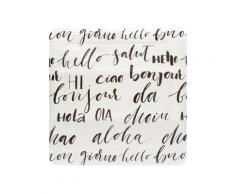 uon giorno hello buo
hello salut HELLO
HI ciao bonjour
bonjour ola b
Hola OlA choin
hao aloha ch
uon giorno hello buo